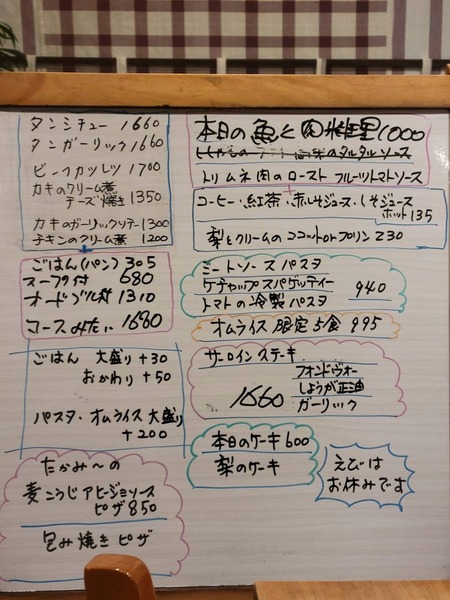 タンシチュー 1660
タンガーリック 1660
ビーフカツレツ 1700
カキのクリーム煮
チーズ焼き 1350
カキのガーリックソテー 1300
チキンのクリーム煮 1200
ごはん(パン) 305
スープ付 680
オードブル付 1310
コースみたい 1680
ごはん 大盛り +30
おかわり +50
パスタ・オムライス大盛り
+200
たかみ〜の
麦こうじアヒージョソース
ピザ 850
包み焼きピザ
本日の魚と肉料理 1000
のタルタルソース
トリムネ肉のロースト フルーツトマトソース
コーヒー・紅茶・赤しそジュース・しそジュース
ホット 135
梨とクリームのココット or プリン 230
ミートソースパスタ
ケチャップスパゲッティー 940
トマトの冷製パスタ
オムライス 限定5食 995
サーロインステーキ
フォンドヴォー
1660 しょうが正油
ガーリック
本日のケーキ 600
梨のケーキ
えびは
お休みです